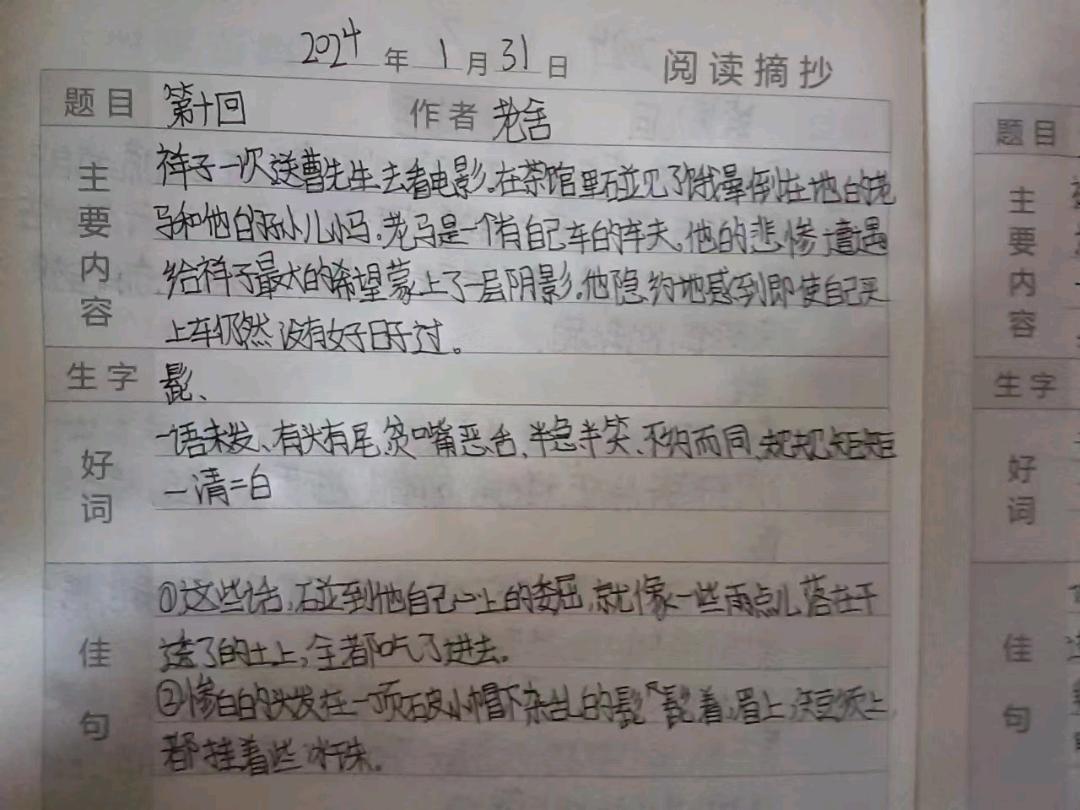 2024 年 1 月 31 日 阅读摘抄
题目 第十回 作者 老舍
主要内容
祥子一次送曹先生去看电影.在茶馆里碰见了饿晕倒在地的老
马和他的孙小儿小马.老马是一个有自己车的车夫.他的悲惨遭遇
给祥子最大的希望蒙上了一层阴影.他隐约地感到即使自己买
上车仍然没有好日子过。
生字 髭、
好词
一语未发、有头有尾,贫嘴恶舌,半急半笑、不约而同,规规矩矩
一清二白
佳句
①这些话,碰到他自己心上的委屈,就像一些雨点儿落在干
透了的土上,全都吃了进去。
②惨白的头发在一顶破小帽下杂乱的髭髭着,眉上,短须上,
都挂着些冰珠.
题目
主要内容
生字
好词
佳句